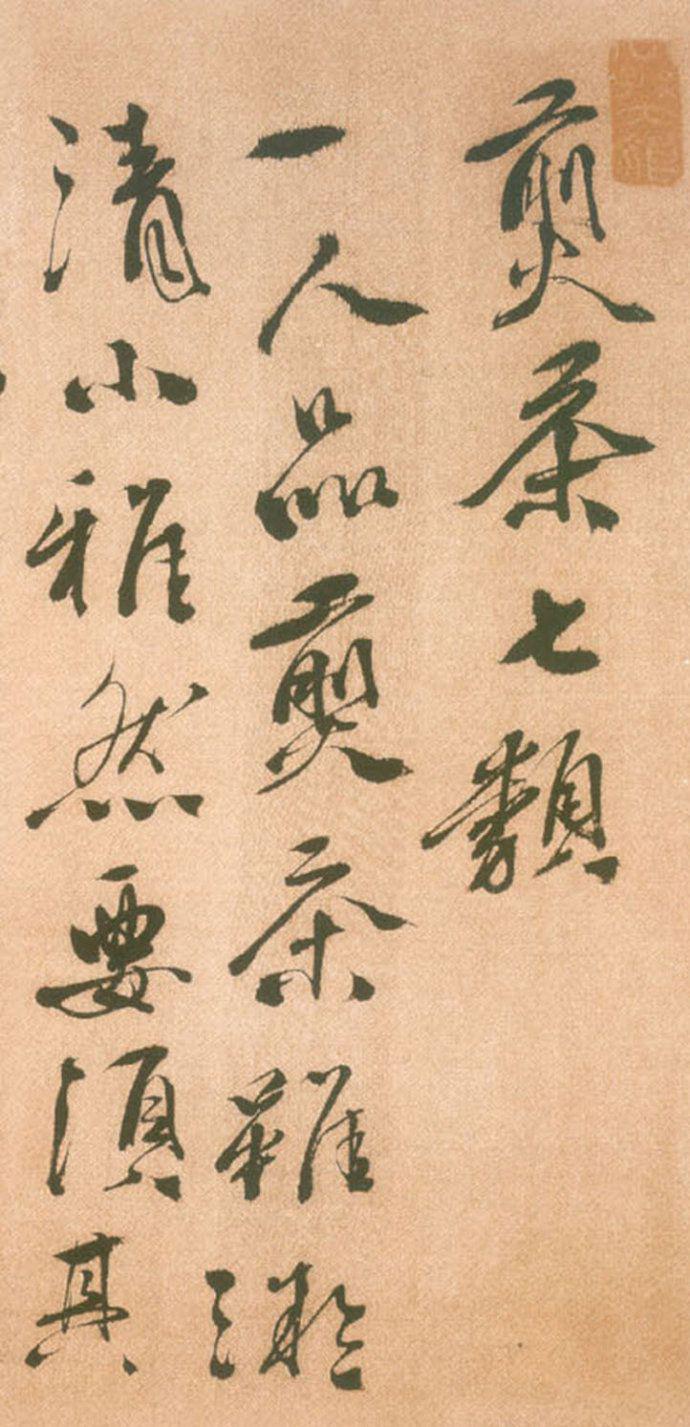 煎茶七類
一人品煎茶雖
清小雅然要須其